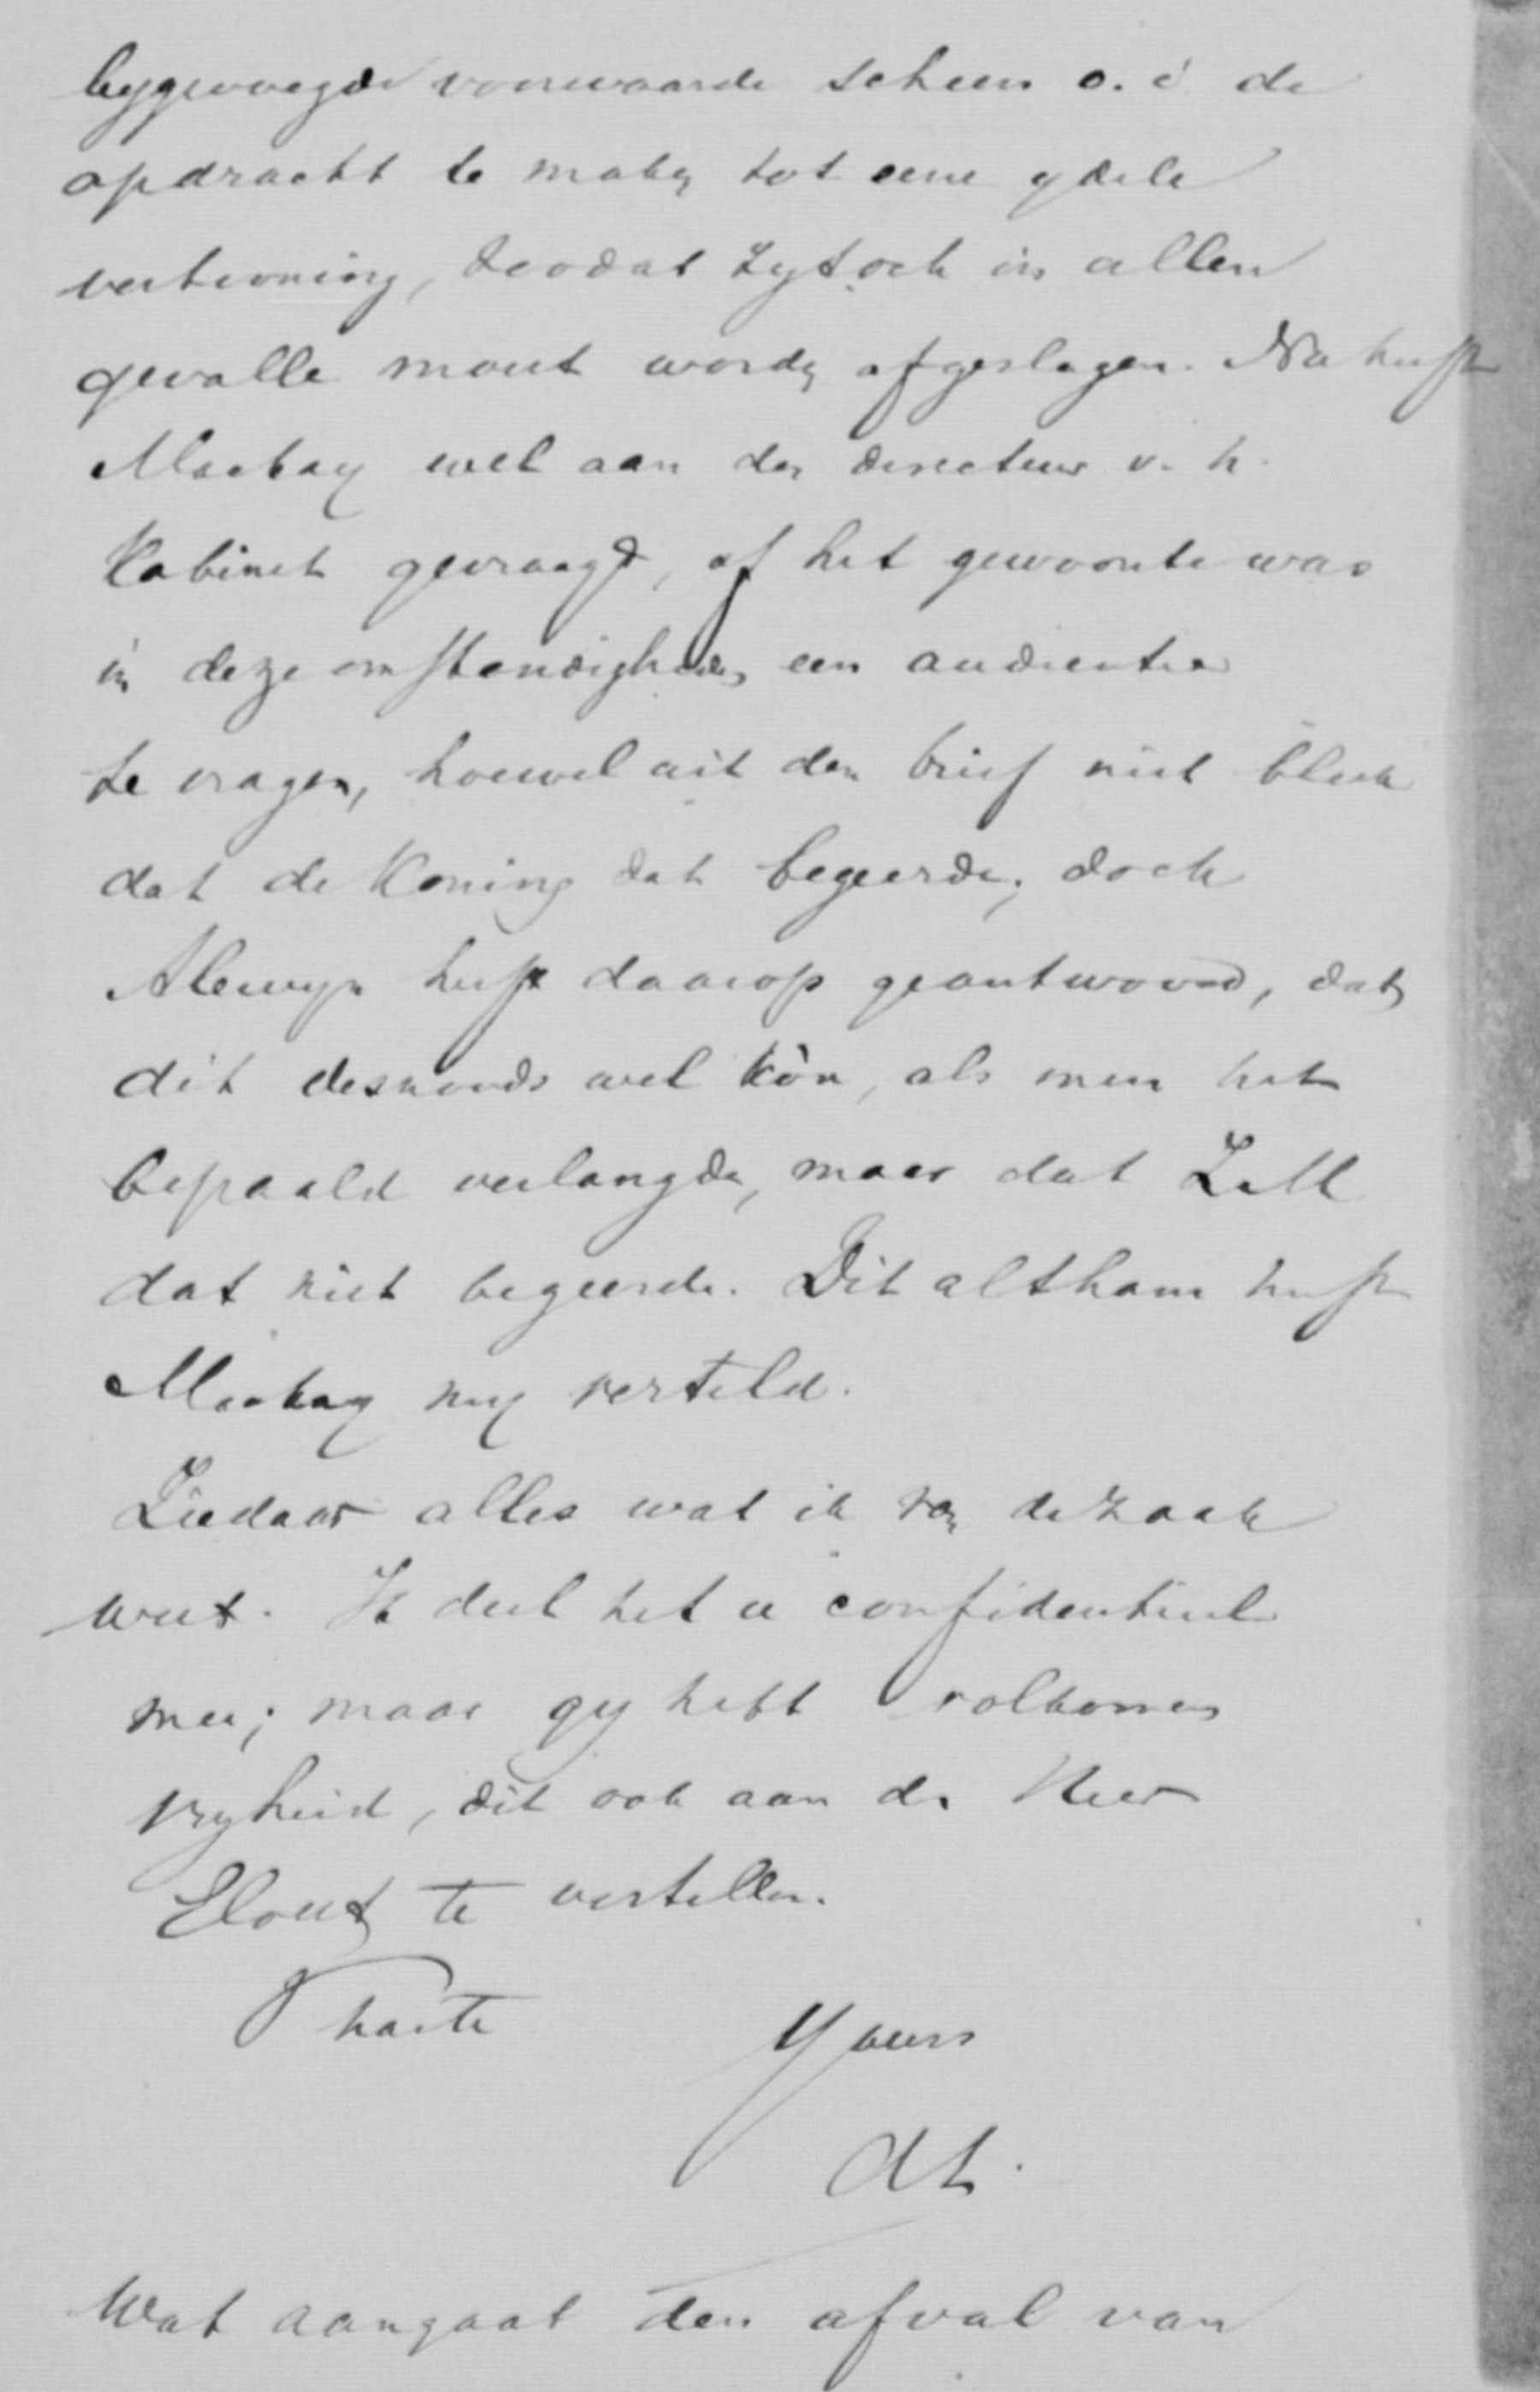 bygevoegde voorwaarde scheen o.i. de
opdracht te maken tot eene ydele
vertooning, doodat zy toch in allen
gevalle moest worden afgeslagen. Nu heeft
Mackay wel aan den directeur v. h.
Kabinet gevraagd, of het gewoonte was
in deze omstandigheden een audientie
te vragen, hoewel uit den brief niet bleek
dat de Koning dat begeerde; doch
Alewyn heeft daarop geantwoord, dat
dit desnoods wel kòn, als men het
bepaald verlangde, maar dat Z.M
dat niet begeerde. Dit althans heeft
Mackay my verteld.
Ziedaar alles wat ik van de zaak
weet. Ik deel het u confidentieel
mee; maar gy hebt volkomen
vryheid, dit ook aan de Heer
Elout te vertellen.
t harte
Yours
AL.
Wat aangaat den afval van